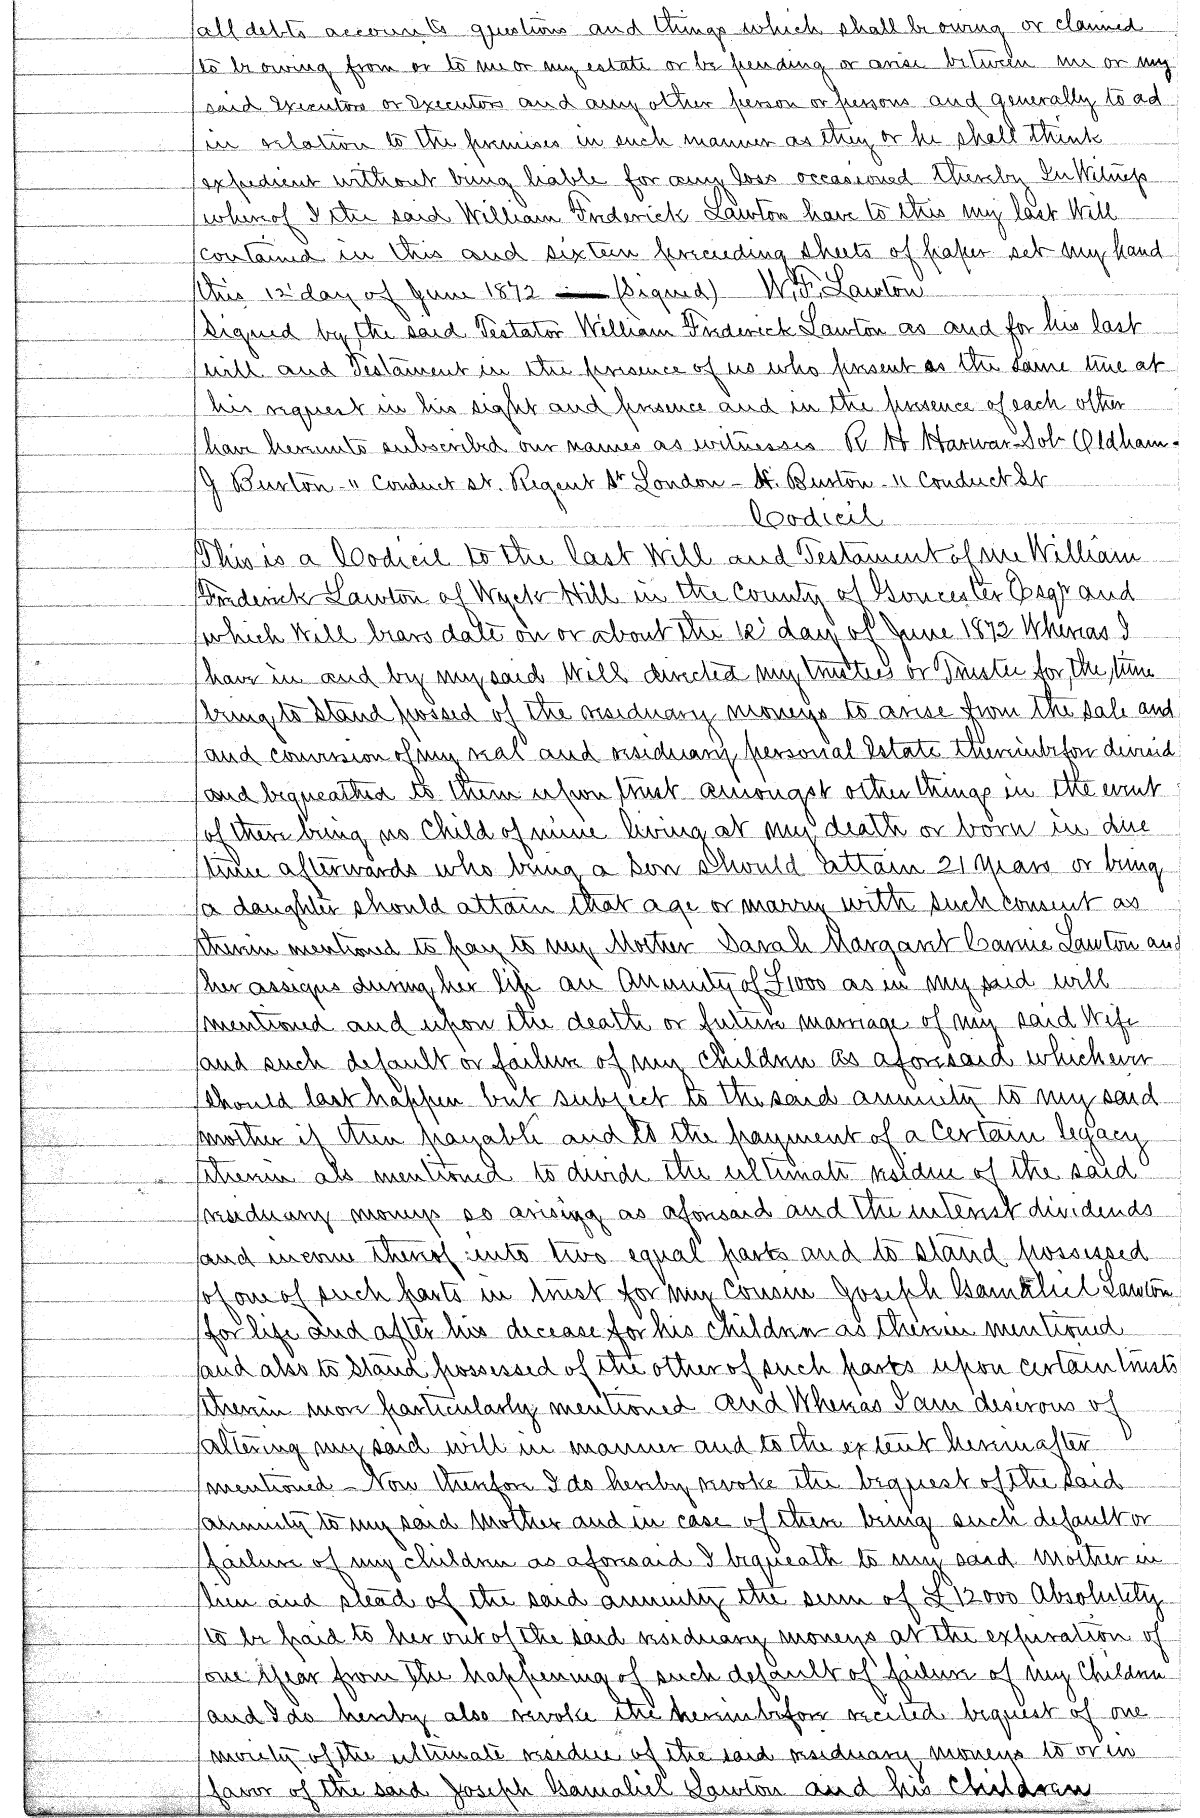 all debts accounts questions and things which shall be owing or claimed
to be owing from or to me or my estate or be pending or arise between me or my
said Executors or Executors and any other person or persons and generally to ad
in relation to the premises in such manner as they or he shall think
expedient without being liable for any loss occasioned thereby In Witness
whereof I the said William Frederick Lawton have to this my last Will
contained in this and sixteen preceeding sheets of paper set my hand
this 12' day of June 1872 — (Signed) W. F. Lawton
Signed by the said Testator William Frederick Lawton as and for his last
will and Testament in the presence of us who present as the same time at
his request in his sight and presence and in the presence of each other
have hereunto subscribed our names as witnesses R H Harwar Sol: Oldham -
G Burton - 11 Conduct st. Regent St London - H. Burton - 11 Conduct St
Codicil
This is a Codicil to the last Will and Testament of me William
Frederick Lawton of Wyck Hill in the County of Goucester Esqr and
which Will bears date on or about the 12' day of June 1872 Whereas I
have in and by my said Will directed my trustees or Trustee for the time
being to stand possed of the residuary moneys to arise from the sale and
and conversion of my real and residuary personal Estate thereinbefore devised
and bequeathed to them upon trust amongst other things in the event
of there being no Child of mine living at my death or born in due
time afterwards who being a Son should attain 21 years or being
a daughter should attain that age or marry with such consent as
therein mentioned to pay to my Mother Sarah Margaret Carrie Lawton and
her assigns during her life an Annuity of £1000 as in my said will
mentioned and upon the death or future marriage of my said Wife
and such default or failure of my children as aforesaid whichever
should last happen but subject to the said annuity to my said
mother if then payable and to the payment of a certain legacy
therein als mentioned to divide the ultimate residue of the said
residuary moneys so arising as aforesaid and the interest dividends
and income thereof into two equal parts and to stand possessed
of one of such parts in trust for my Cousin Joseph Gamaliel Lawton
for life and after his decease for his children as therein mentioned
and also to stand possessed of the other of such parts upon certain trusts
therein more particularly mentioned and Whereas I am desirous of
altering my said will in manner and to the extent hereinafter
mentioned - Now therefore I do hereby revoke the bequest of the said
annuity to my said Mother and in case of there being such default or
failure of my children as aforesaid I bequeath to my said Mother in
lieu and stead of the said annuity the sum of £12000 Absolutely
to be paid to her out of the said residuary moneys at the expiration of
one year from the happening of such default of failure of my Children
and I do hereby also revoke the hereinbefore recited bequest of one
moiety of the ultimate residue of the said residuary moneys to or in
favor of the said Joseph Gamaliel Lawton and his Children